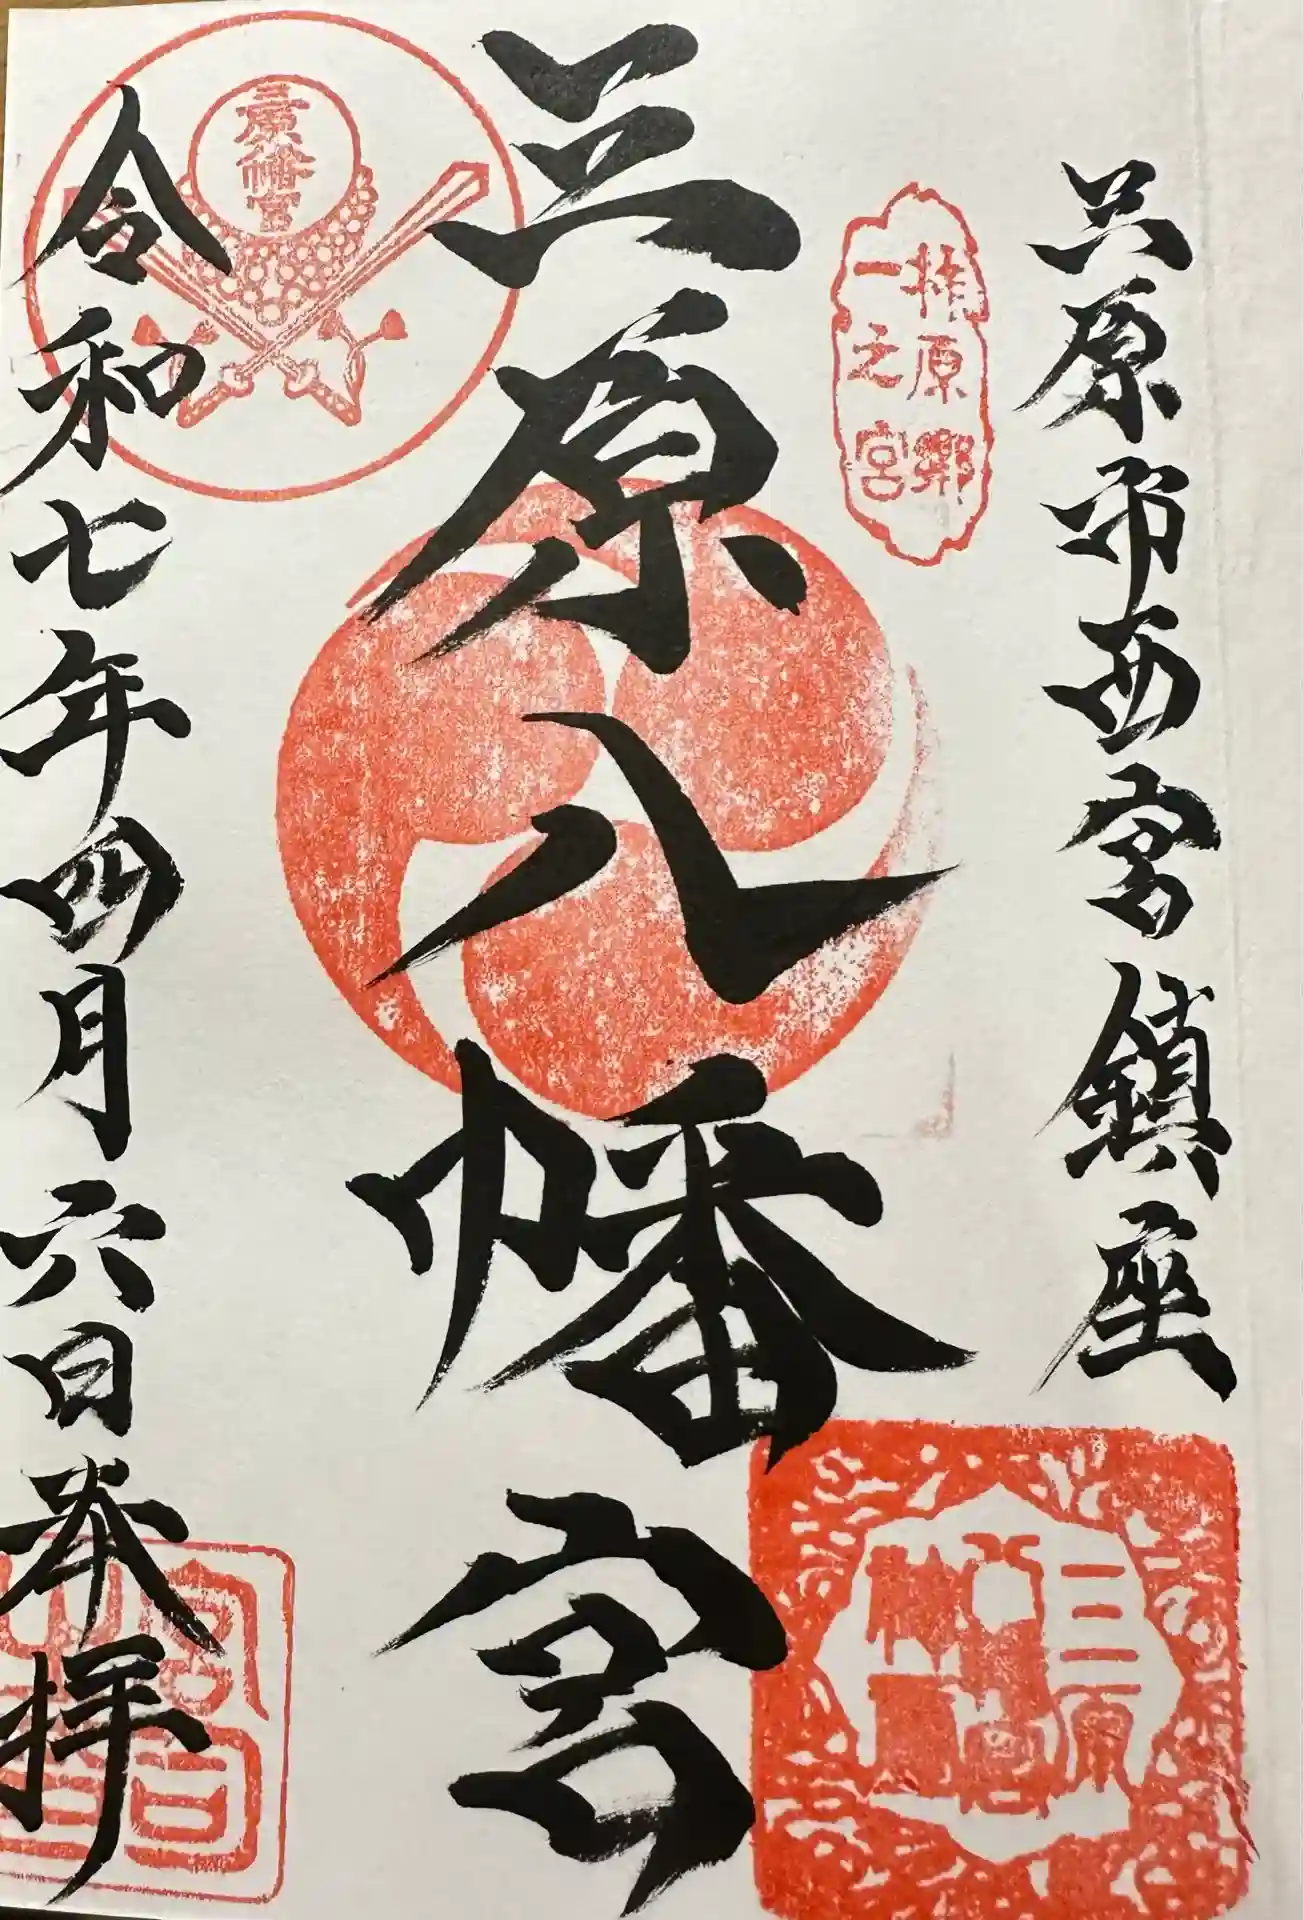 三原市西宮鎮座
柞原郷
一之宮
三原八幡宮
三原
八幡宮
令和七年四月六日奉拝